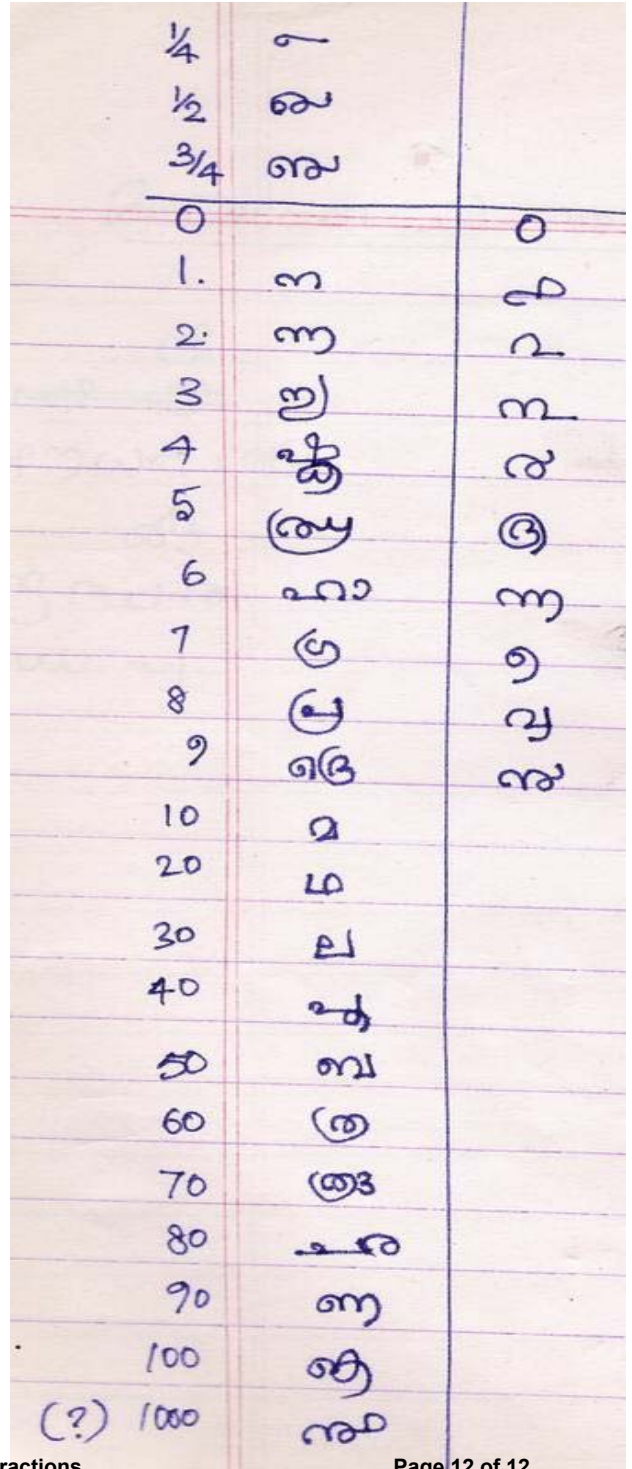 1/4 ൳
1/2 ൴
3/4 ൵
0 0
1. ന ൧
2. ന്ന ൨
3 ന്യ ൩
4 ഷ്ക്ര ൪
5 ഝ്ര ൫
6 ഹാ ൬
7 ഗ്ര ൭
8 പ്ര ൮
9 ദ്രെ ൯
10 മ
20 ഥ
30 ല
40 പ്ത
50 ബ
60 ത്ര
70 ത്രു
80 ച
90 ണ
100 ഞ
(?) 1000
ractions Page 12 of 12